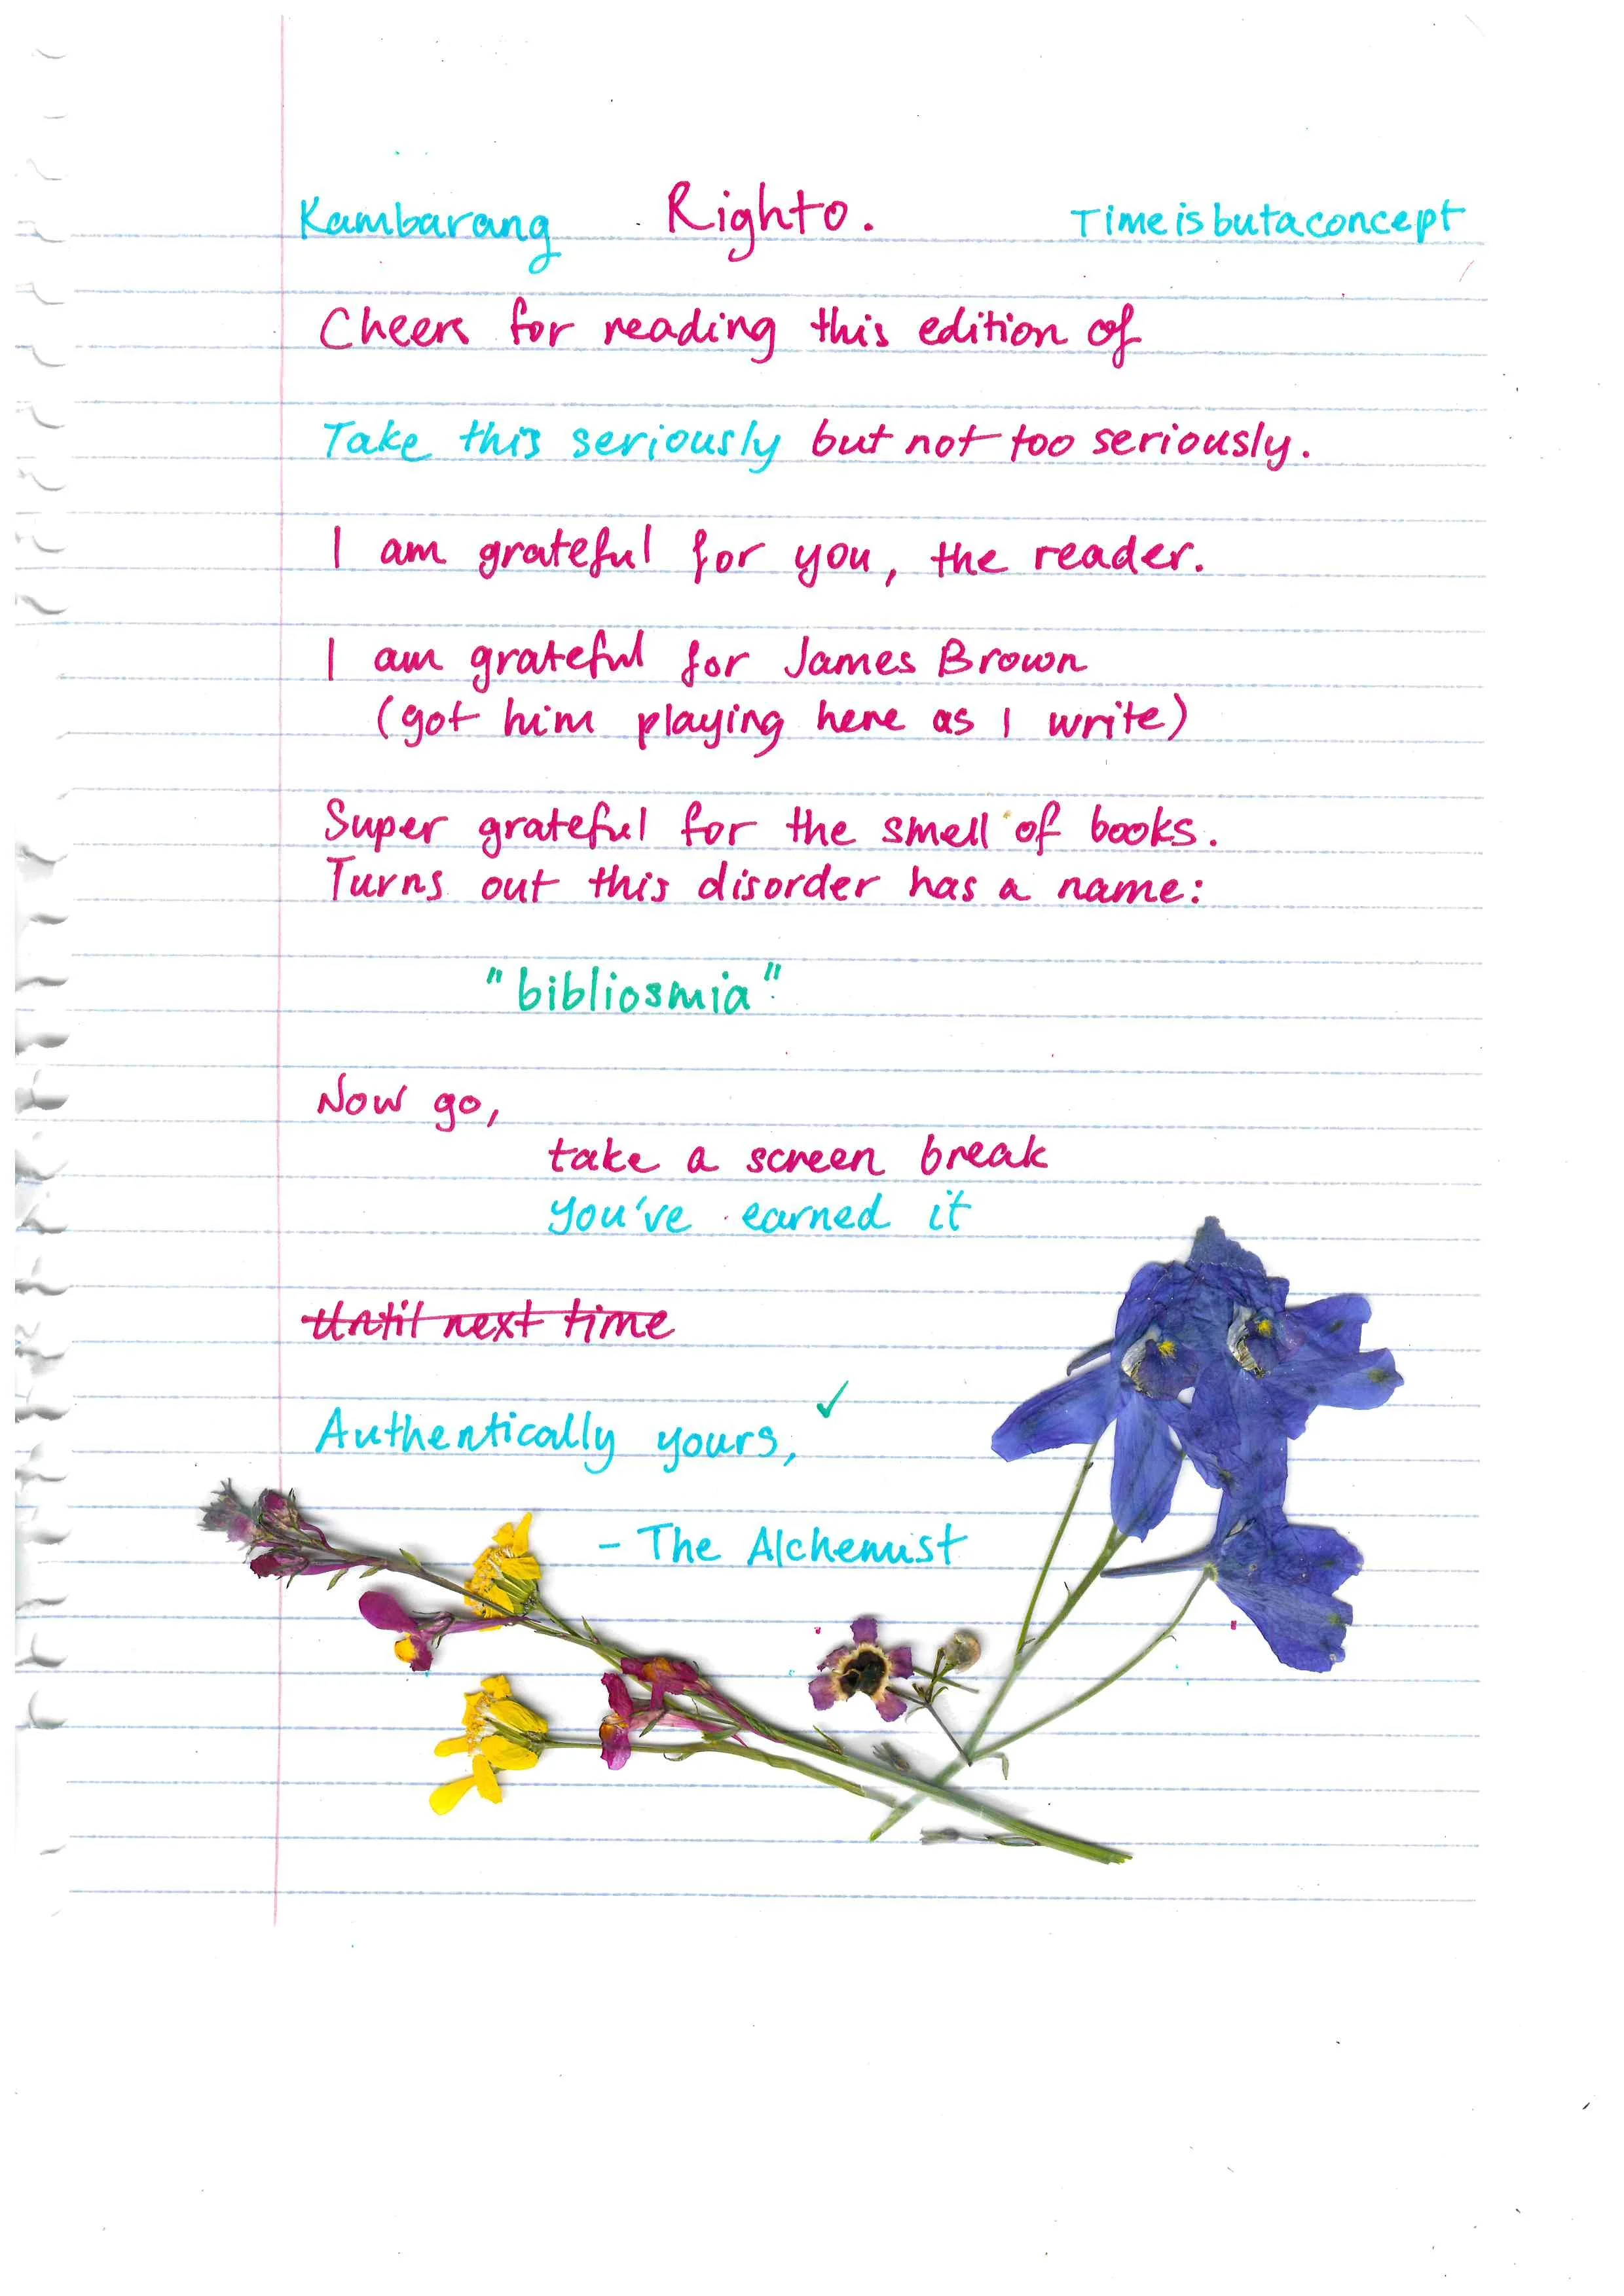 Kambarang Righto. Timeisbutaconcept
Cheers for reading this edition of
Take this seriously but not too seriously.
I am grateful for you, the reader.
I am grateful for James Brown
(got him playing here as I write)
Super grateful for the smell of books.
Turns out this disorder has a name:
"bibliosmia"
Now go,
take a screen break
you've earned it
Until next time
Authentically yours, ✓
- The Alchemist